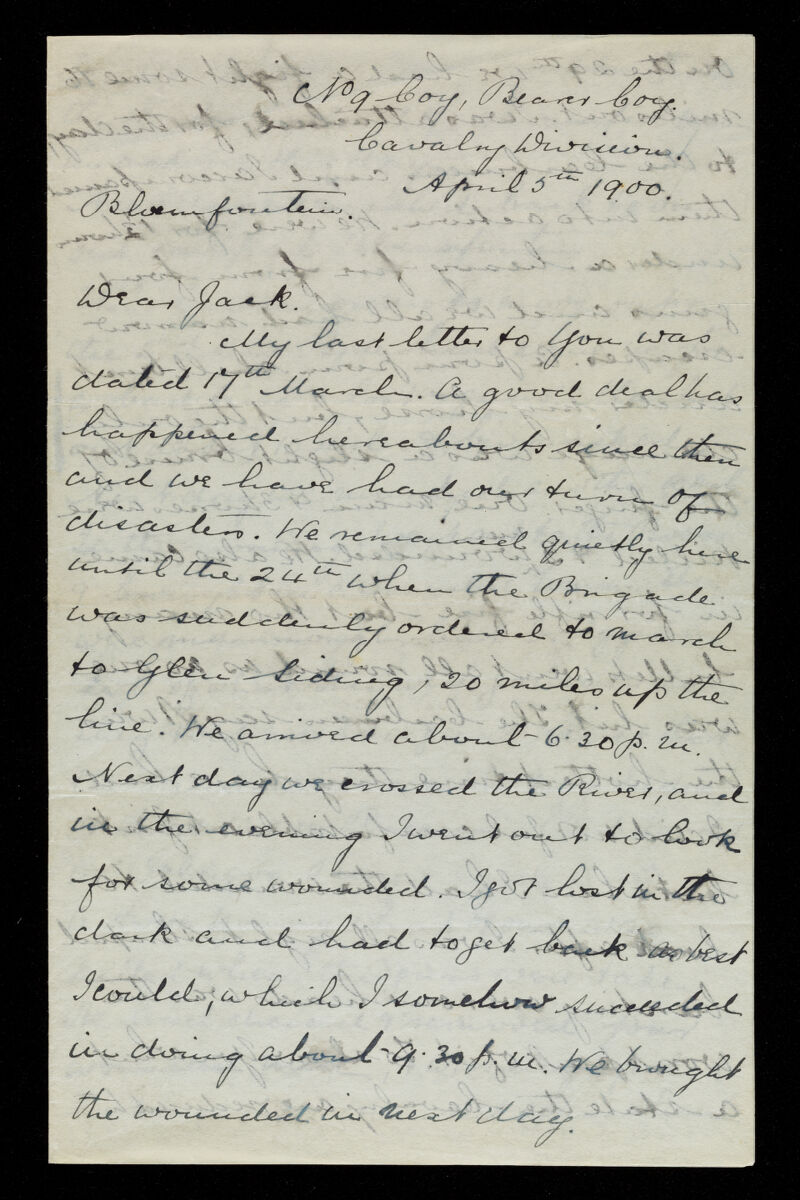 No 9 Coy, Bearer Coy.
Cavalry Division.
April 5th 1900.
Bloemfontein.
Dear Jack.
My last letter to you was
dated 17th March. A good deal has
happened hereabouts since then
and we have had our turn of
disasters. We remained quietly here
until the 24th when the Brigade
was suddenly ordered to march
to Glen Siding, 20 miles up the
line. We arrived about 6.30 p.m.
Next day we crossed the River, and
in the evening I went out to look
for some wounded. I got lost in the
dark and had to get back as best
I could, which I somehow succeeded
in doing about 9.30 p.m. We brought
the wounded in next day.